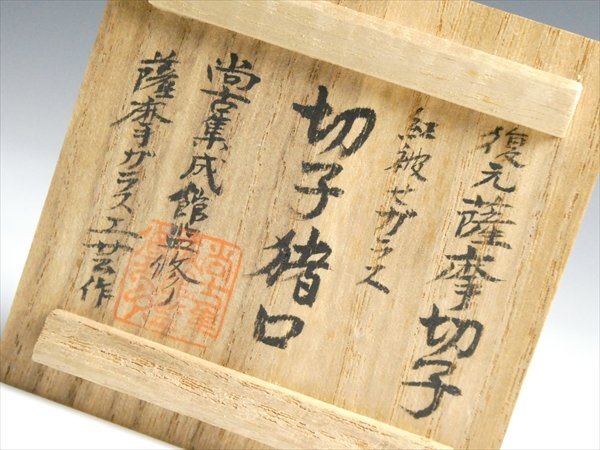 復元薩摩切子
紅被せガラス
切子猪口
尚古集成館監修
薩摩ガラス工芸作